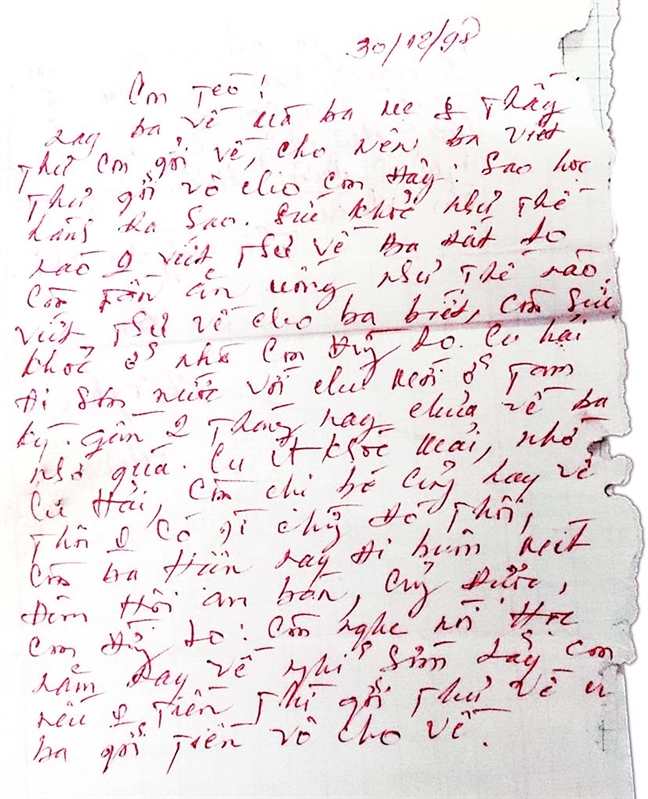 30/12/98
Con Tèo!
nay ba về mà ba mẹ 0 thấy
Thư con gởi về, cho nên ba viết
Thư gởi vô cho con đây: Sao học
hành Ra Sao. Sức khỏe như thế
nào 0 viết Thư về ba rất lo
còn Tền ăn uống như thế nào
viết Thư về cho ba biết, còn sức
khỏe ở nhà con đừng lo. Cu hai
đi sơn nước với chú ở Tam
kỳ. gần 2 Tháng nay chưa về ba
nhớ quá. Cu út khóc mãi, nhớ
Cu Hai, còn chị bé cũng hay về
Thôi 0 có gì chỉ đó Thôi,
còn ba Hiền nay đi buôn mít
đem Hội an bán, cũng được,
con đừng lo: còn nghe nói Học
năm nay về nghỉ sớm lắm con
nếu 0 Tiền Thì gởi Thư về
ba gởi Tiền vô cho về.